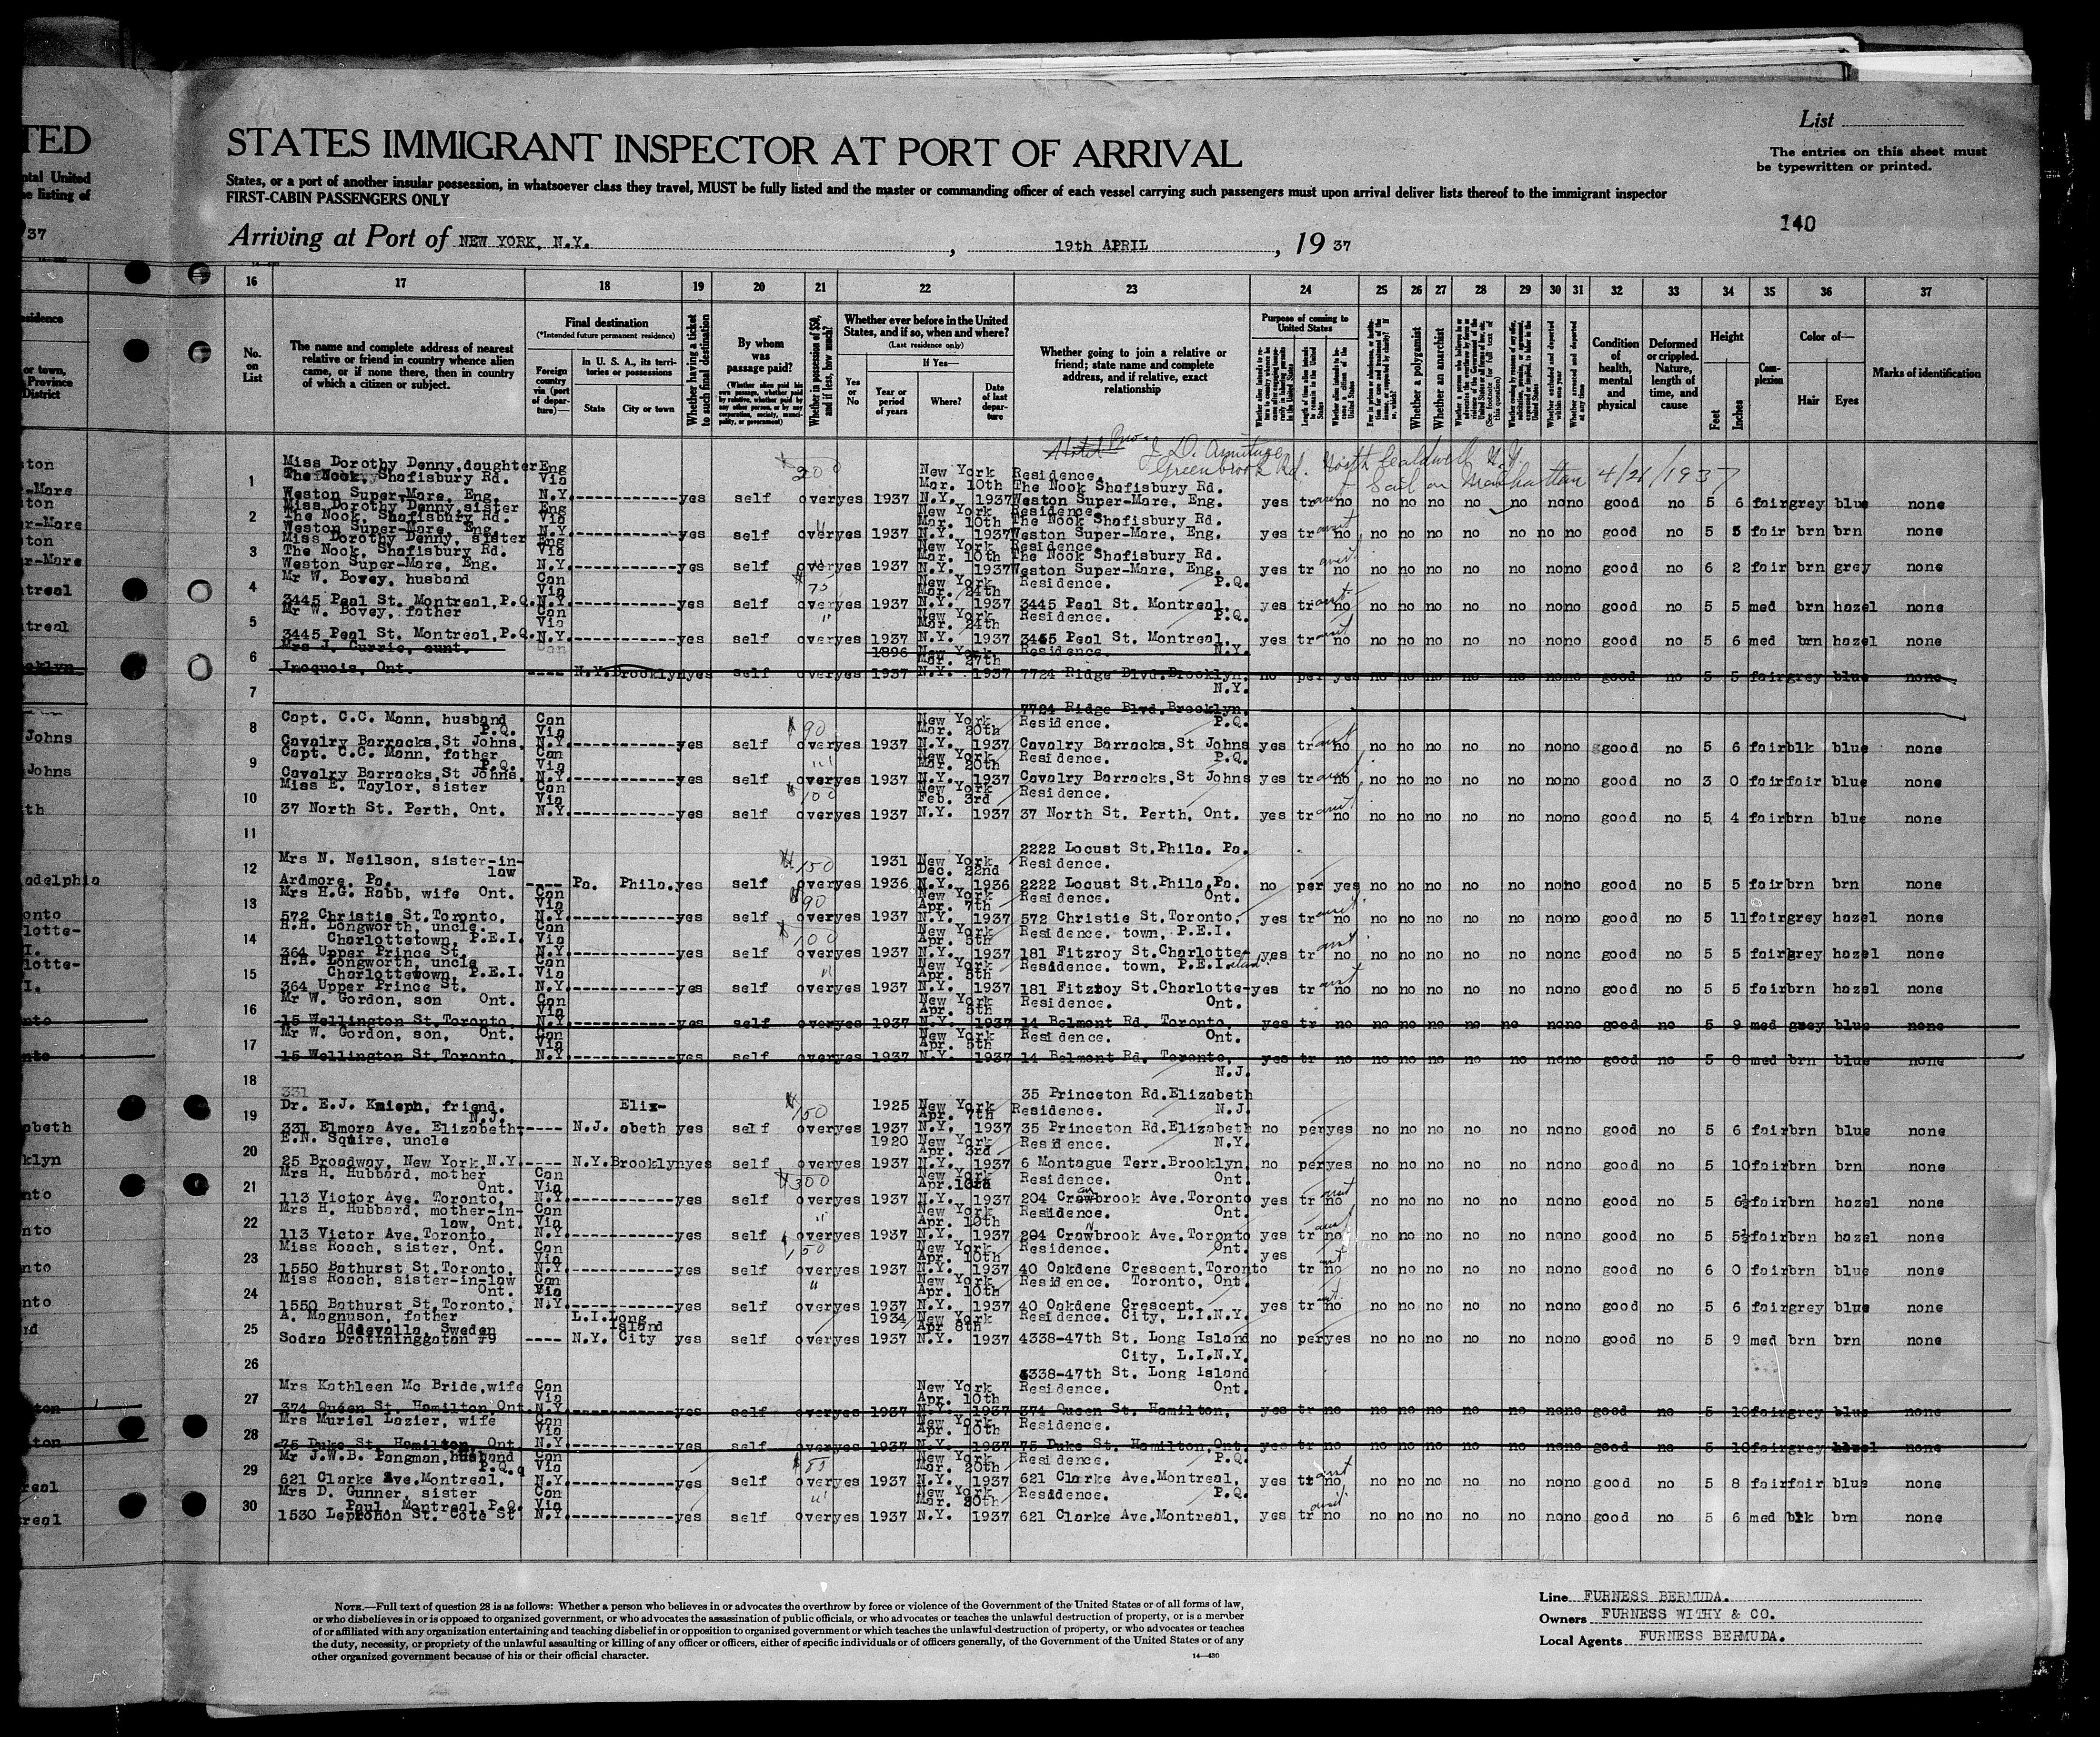 TED
ntal United
e listing of
37
List
The entries on this sheet must
be typewritten or printed.
STATES IMMIGRANT INSPECTOR AT PORT OF ARRIVAL
States, or a port of another insular possession, in whatsoever class they travel, MUST be fully listed and the master or commanding officer of each vessel carrying such passengers must upon arrival deliver lists thereof to the immigrant inspector
FIRST-CABIN PASSENGERS ONLY
140
Arriving at Port of NEW YORK, N.Y. , 19th APRIL , 19 37
16 17 18 19 20 21 22 23 24 25 26 27 28 29 30 31 32 33 34 35 36 37
No. on List
The name and complete address of nearest relative or friend in country whence alien came, or if none there, then in country of which a citizen or subject.
Final destination
(*Intended future permanent residence)
Foreign country via (port of departure)—
In U. S. A., its territories or possessions
State City or town
Whether having a ticket to such final destination
By whom was passage paid?
(Whether alien paid his own passage, whether paid by relative, whether paid by any other person, or by any corporation, society, municipality, or government)
Whether in possession of $50, and if less, how much?
Whether ever before in the United States, and if so, when and where?
(Last residence only)
Yes or No
If Yes—
Year or period of years
Where?
Date of last departure
Whether going to join a relative or friend; state name and complete address, and if relative, exact relationship
Purpose of coming to United States
Whether a polygamist
Whether an anarchist
Condition of health, mental and physical
Deformed or crippled. Nature, length of time, and cause
Height
Feet Inches
Complexion
Color of—
Hair Eyes
Marks of identification
J. D. Armitage
Greenbrook Rd. North Caldwell N.J.
Sail on Manhattan 4/21/1937
1 Miss Dorothy Denny, daughter Eng 200 New York Residence.
The Nook, Shafisbury Rd. Via Mar. 10th The Nook Shafisbury Rd.
Weston Super-Mare, Eng. N.Y. yes self over yes 1937 N.Y. 1937 Weston Super-Mare, Eng. yes transit no no no no no no no no good no 5 6 fair grey blue none
2 Miss Dorothy Denny, sister Eng New York Residence.
The Nook, Shafisbury Rd. Via " Mar. 10th The Nook Shafisbury Rd.
Weston Super-Mare, Eng. N.Y. yes self over yes 1937 N.Y. 1937 Weston Super-Mare, Eng. yes transit no no no no no no no no good no 5 5 fair brn brn none
3 Miss Dorothy Denny, sister Eng New York Residence.
The Nook, Shafisbury Rd. Via Mar. 10th The Nook Shafisbury Rd.
Weston Super-Mare, Eng. N.Y. yes self over yes 1937 N.Y. 1937 Weston Super-Mare, Eng. yes transit no no no no no no no no good no 6 2 fair brn grey none
4 Mr W. Bovey, husband Can $75 New York Residence. P.Q.
Via Mar. 24th
3445 Peal St. Montreal, P.Q. N.Y. yes self over yes 1937 N.Y. 1937 3445 Peal St. Montreal, yes transit no no no no no no no no good no 5 5 med brn hazel none
5 Mr W. Bovey, father Can " New York Residence. P.Q.
Via Mar. 24th
3445 Peal St. Montreal, P.Q. N.Y. yes self over yes 1937 N.Y. 1937 3445 Peal St. Montreal, yes transit no no no no no no no no good no 5 6 med brn hazel none
6 Mrs J. Currie, aunt. Can 1896 New York Residence. N.Y.
Mar. 27th
Inoquois, Ont. ---- N.Y. Brooklyn yes self over yes 1937 N.Y. 1937 7724 Ridge Blvd. Brooklyn, no per yes no no no no no no no good no 5 5 fair grey blue none
7 N.Y.
7724 Ridge Blvd. Brooklyn.
8 Capt. C.C. Mann, husband Can $90 New York Residence. P.Q.
P.Q. Via Mar. 20th
Cavalry Barracks, St Johns, N.Y. yes self over yes 1937 N.Y. 1937 Cavalry Barracks, St Johns yes transit no no no no no no no no good no 5 6 fair blk blue none
9 Capt. C.C. Mann, father Can " New York Residence. P.Q.
P.Q. Via Mar. 20th
Cavalry Barracks, St Johns, N.Y. yes self over yes 1937 N.Y. 1937 Cavalry Barracks, St Johns yes transit no no no no no no no no good no 3 0 fair fair blue none
10 Miss E. Taylor, sister Can $100 New York Residence.
Via Feb. 3rd
37 North St. Perth, Ont. N.Y. yes self over yes 1937 N.Y. 1937 37 North St. Perth, Ont. yes transit no no no no no no no no good no 5 4 fair brn blue none
11
2222 Locust St. Phila. Pa.
12 Mrs N. Neilson, sister-in-law $150 1931 New York Residence.
Dec. 22nd
Ardmore, Pa. ---- Pa. Phila. yes self over yes 1936 N.Y. 1936 2222 Locust St. Phila, Pa. no per yes no no no no no no no good no 5 5 fair brn brn none
13 Mrs H.G. Rabb, wife Ont. Can $90 New York Residence. Ont.
Via Apr. 7th
572 Christie St. Toronto. N.Y. yes self over yes 1937 N.Y. 1937 572 Christie St. Toronto. yes transit no no no no no no no no good no 5 11 fair grey hazel none
14 H.H. Longworth, uncle. Can $100 New York Residence. town, P.E.I.
Charlottetown, P.E.I. Via Apr. 5th
364 Upper Prince St. N.Y. yes self over yes 1937 N.Y. 1937 181 Fitzroy St. Charlotte- yes transit no no no no no no no no good no 5 5 fair grey hazel none
15 H.H. Longworth, uncle Can " New York Residence. town, P.E.I.
Charlottetown, P.E.I. Via Apr. 5th
364 Upper Prince St. N.Y. yes self over yes 1937 N.Y. 1937 181 Fitzroy St. Charlotte- yes transit no no no no no no no no good no 5 5 fair brn hazel none
16 Mr W. Gordon, son Ont. Can New York Residence. Ont.
Via Apr. 5th
15 Wellington St. Toronto, N.Y. yes self over yes 1937 N.Y. 1937 14 Belmont Rd. Toronto, yes tr no no no no no no no no good no 5 9 med grey blue none
17 Mr W. Gordon, son, Ont. Can New York Residence. Ont.
Via Apr. 5th
15 Wellington St. Toronto, N.Y. yes self over yes 1937 N.Y. 1937 14 Belmont Rd. Toronto, yes tr no no no no no no no no good no 5 8 med brn blue none
18 N.J.
331 35 Princeton Rd. Elizabeth
19 Dr. E.J. Knieph, friend. Eliz- $150 1925 New York Residence. N.J.
N.J. Apr. 7th
331 Elmora Ave. Elizabeth, ---- N.J. abeth yes self over yes 1937 N.Y. 1937 35 Princeton Rd. Elizabeth no per yes no no no no no no no good no 5 6 fair brn blue none
20 E.N. Squire, uncle 1920 New York Residence. N.Y.
Apr. 3rd
25 Broadway, New York, N.Y. ---- N.Y. Brooklyn yes self over yes 1937 N.Y. 1937 6 Montague Terr. Brooklyn, no per yes no no no no no no no good no 5 10 fair brn brn none
21 Mrs H. Hubbard, mother Can $300 New York Residence. Ont.
Ont. Via Apr. 10th
113 Victor Ave. Toronto, N.Y. yes self over yes 1937 N.Y. 1937 204 Crawbrook Ave. Toronto yes transit no no no no no no no no good no 5 6½ fair brn hazel none
22 Mrs H. Hubbard, mother-in- Can " New York Residence. Ont.
law, Ont. Via Apr. 10th
113 Victor Ave. Toronto, N.Y. yes self over yes 1937 N.Y. 1937 204 Crowbrook Ave. Toronto yes transit no no no no no no no no good no 5 5½ fair brn hazel none
23 Miss Roach, sister, Ont. Can $150 New York Residence. Ont.
Via Apr. 10th
1550 Bathurst St. Toronto, N.Y. yes self over yes 1937 N.Y. 1937 40 Oakdene Crescent, Toronto yes tr no no no no no no no no good no 6 0 fair brn blue none
24 Miss Roach, sister-in-law Can " New York Residence. Toronto, Ont.
Ont. Via Apr. 10th
1550 Bathurst St. Toronto, N.Y. yes self over yes 1937 N.Y. 1937 40 Oakdene Crescent, yes tr no no no no no no no no good no 5 6 fair grey blue none
25 A. Magnuson, father L.I. Long 1934 New York Residence. City, L.I.N.Y.
Uddevalla, Sweden Island Apr 8th
Sodra Drottninggatan #9 ---- N.Y. City yes self over yes 1937 N.Y. 1937 4338-47th St. Long Island no per yes no no no no no no no good no 5 9 med brn brn none
26 City, L.I.N.Y.
4338-47th St. Long Island
27 Mrs Kathleen Mc Bride, wife Can New York Residence. Ont.
Via Apr. 10th
374 Queen St. Hamilton, Ont. N.Y. yes self over yes 1937 N.Y. 1937 374 Queen St. Hamilton, yes tr no no no no no no no no good no 5 10 fair grey blue none
28 Mrs Muriel Lazier, wife Can New York Residence.
Via Apr. 10th
75 Duke St. Hamilton, Ont. N.Y. yes self over yes 1937 N.Y. 1937 75 Duke St. Hamilton, Ont. yes tr no no no no no no no no good no 5 10 fair grey hazel none
29 Mr J.W.B. Pangman, husband Can New York Residence. P.Q.
P.Q. Via Mar. 20th
621 Clarke Ave. Montreal, N.Y. yes self over yes 1937 N.Y. 1937 621 Clarke Ave. Montreal, yes transit no no no no no no no no good no 5 8 fair fair blue none
30 Mrs D. Gunner, sister Can " New York Residence. P.Q.
Paul, Montreal P.Q. Via Mar. 20th
1530 Leprohon St. Cote St N.Y. yes self over yes 1937 N.Y. 1937 621 Clarke Ave. Montreal, yes transit no no no no no no no no good no 5 6 med blk brn none
NOTE.—Full text of question 28 is as follows: Whether a person who believes in or advocates the overthrow by force or violence of the Government of the United States or of all forms of law,
or who disbelieves in or is opposed to organized government, or who advocates the assassination of public officials, or who advocates or teaches the unlawful destruction of property, or is a member
of or affiliated with any organization entertaining and teaching disbelief in or opposition to organized government or which teaches the unlawful destruction of property, or who advocates or teaches
the duty, necessity, or propriety of the unlawful assaulting or killing of any officer or officers, either of specific individuals or of officers generally, of the Government of the United States or of any
other organized government because of his or their official character.
14—430
Line FURNESS BERMUDA.
Owners FURNESS WITHY & CO.
Local Agents FURNESS BERMUDA.